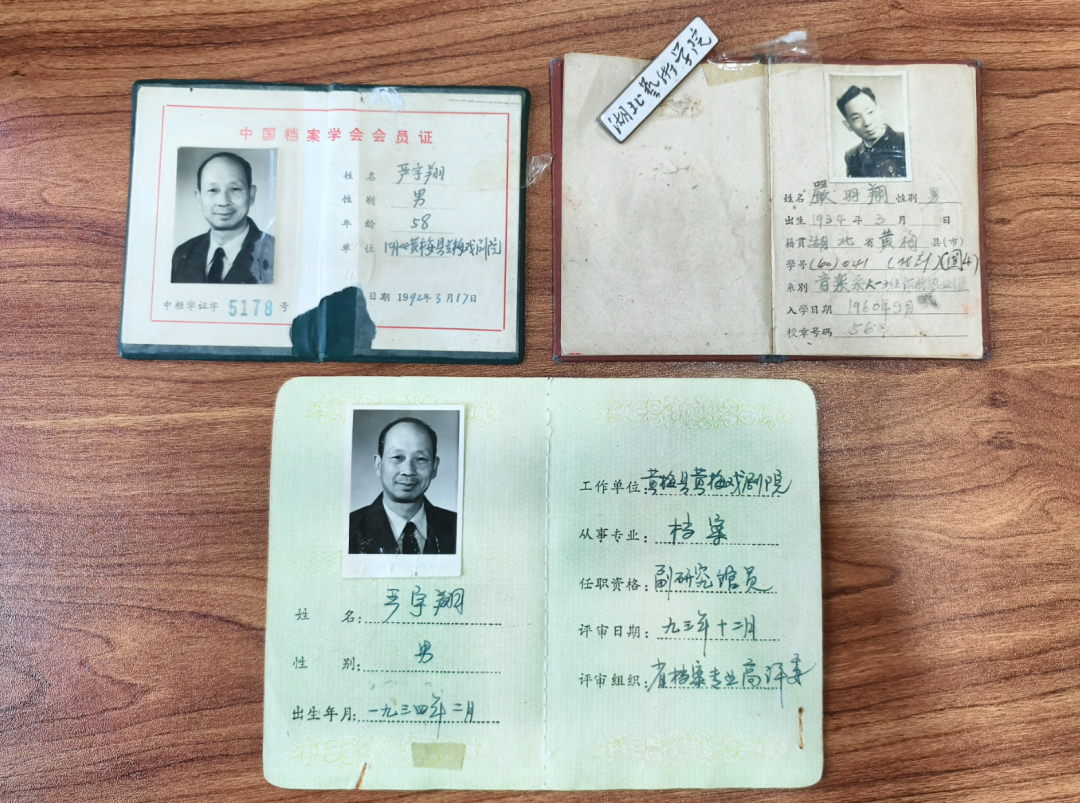 中国档案学会会员证
姓名 严宇翔
性别 男
年龄 58
单位 黄梅县黄梅戏剧院
日期 1992年3月17日
中档学证字 5178 号
湖北艺术学院
姓名 嚴羽翔 性别 男
出生 1934年3月 日
籍贯 湖北省黄梅县(市)
学号 (60)041
系别 音楽系
入学日期 1960年9月
校章号码 56
姓名: 严宇翔
性别: 男
出生年月: 一九三四年二月
工作单位: 黄梅县黄梅戏剧院
从事专业: 档案
任职资格: 副研究馆员
评审日期: 九三年十二月
评审组织: 省档案专业高评委